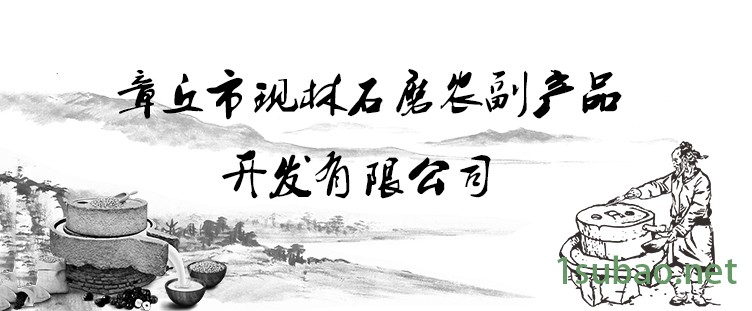 章丘市现林石磨农副产品
开发有限公司
1subao.net